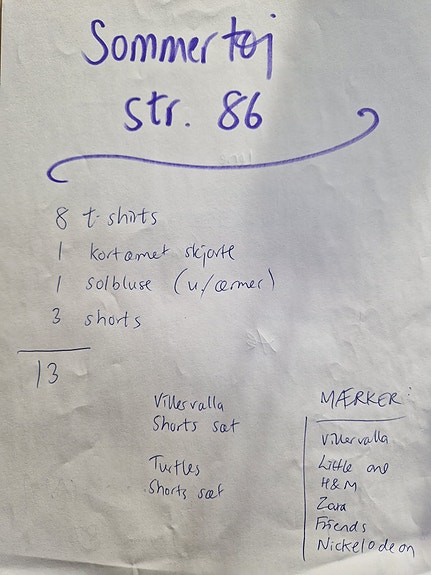 Sommertøj
str. 86
8 t-shirts
1 kortærmet skjorte
1 solbluse (u/ærmer)
3 shorts
13
Villervalla
Shorts sæt
Turtles
Shorts sæt
MÆRKER:
Villervalla
Little one
H&M
Zara
Friends
Nickelodeon